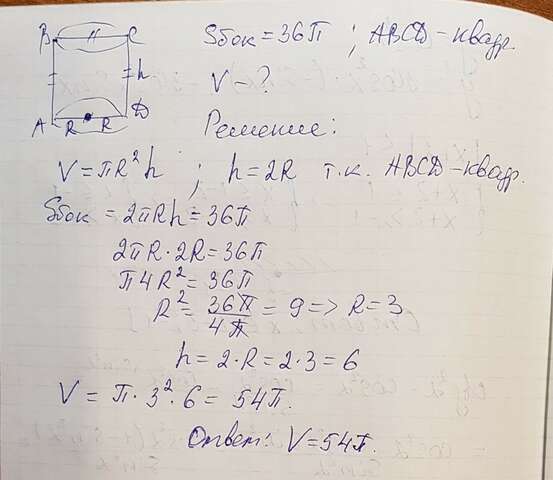 B H C
Sбок = 36π ; ABCD - квадр.
h
V - ?
A R R D
Решение:
V = πR²h ; h = 2R т.к. ABCD - квадр.
Sбок = 2πRh = 36π
2πR·2R = 36π
π4R² = 36π
R² = 36π/4π = 9 => R = 3
h = 2·R = 2·3 = 6
V = π·3²·6 = 54π.
Ответ: V = 54π.